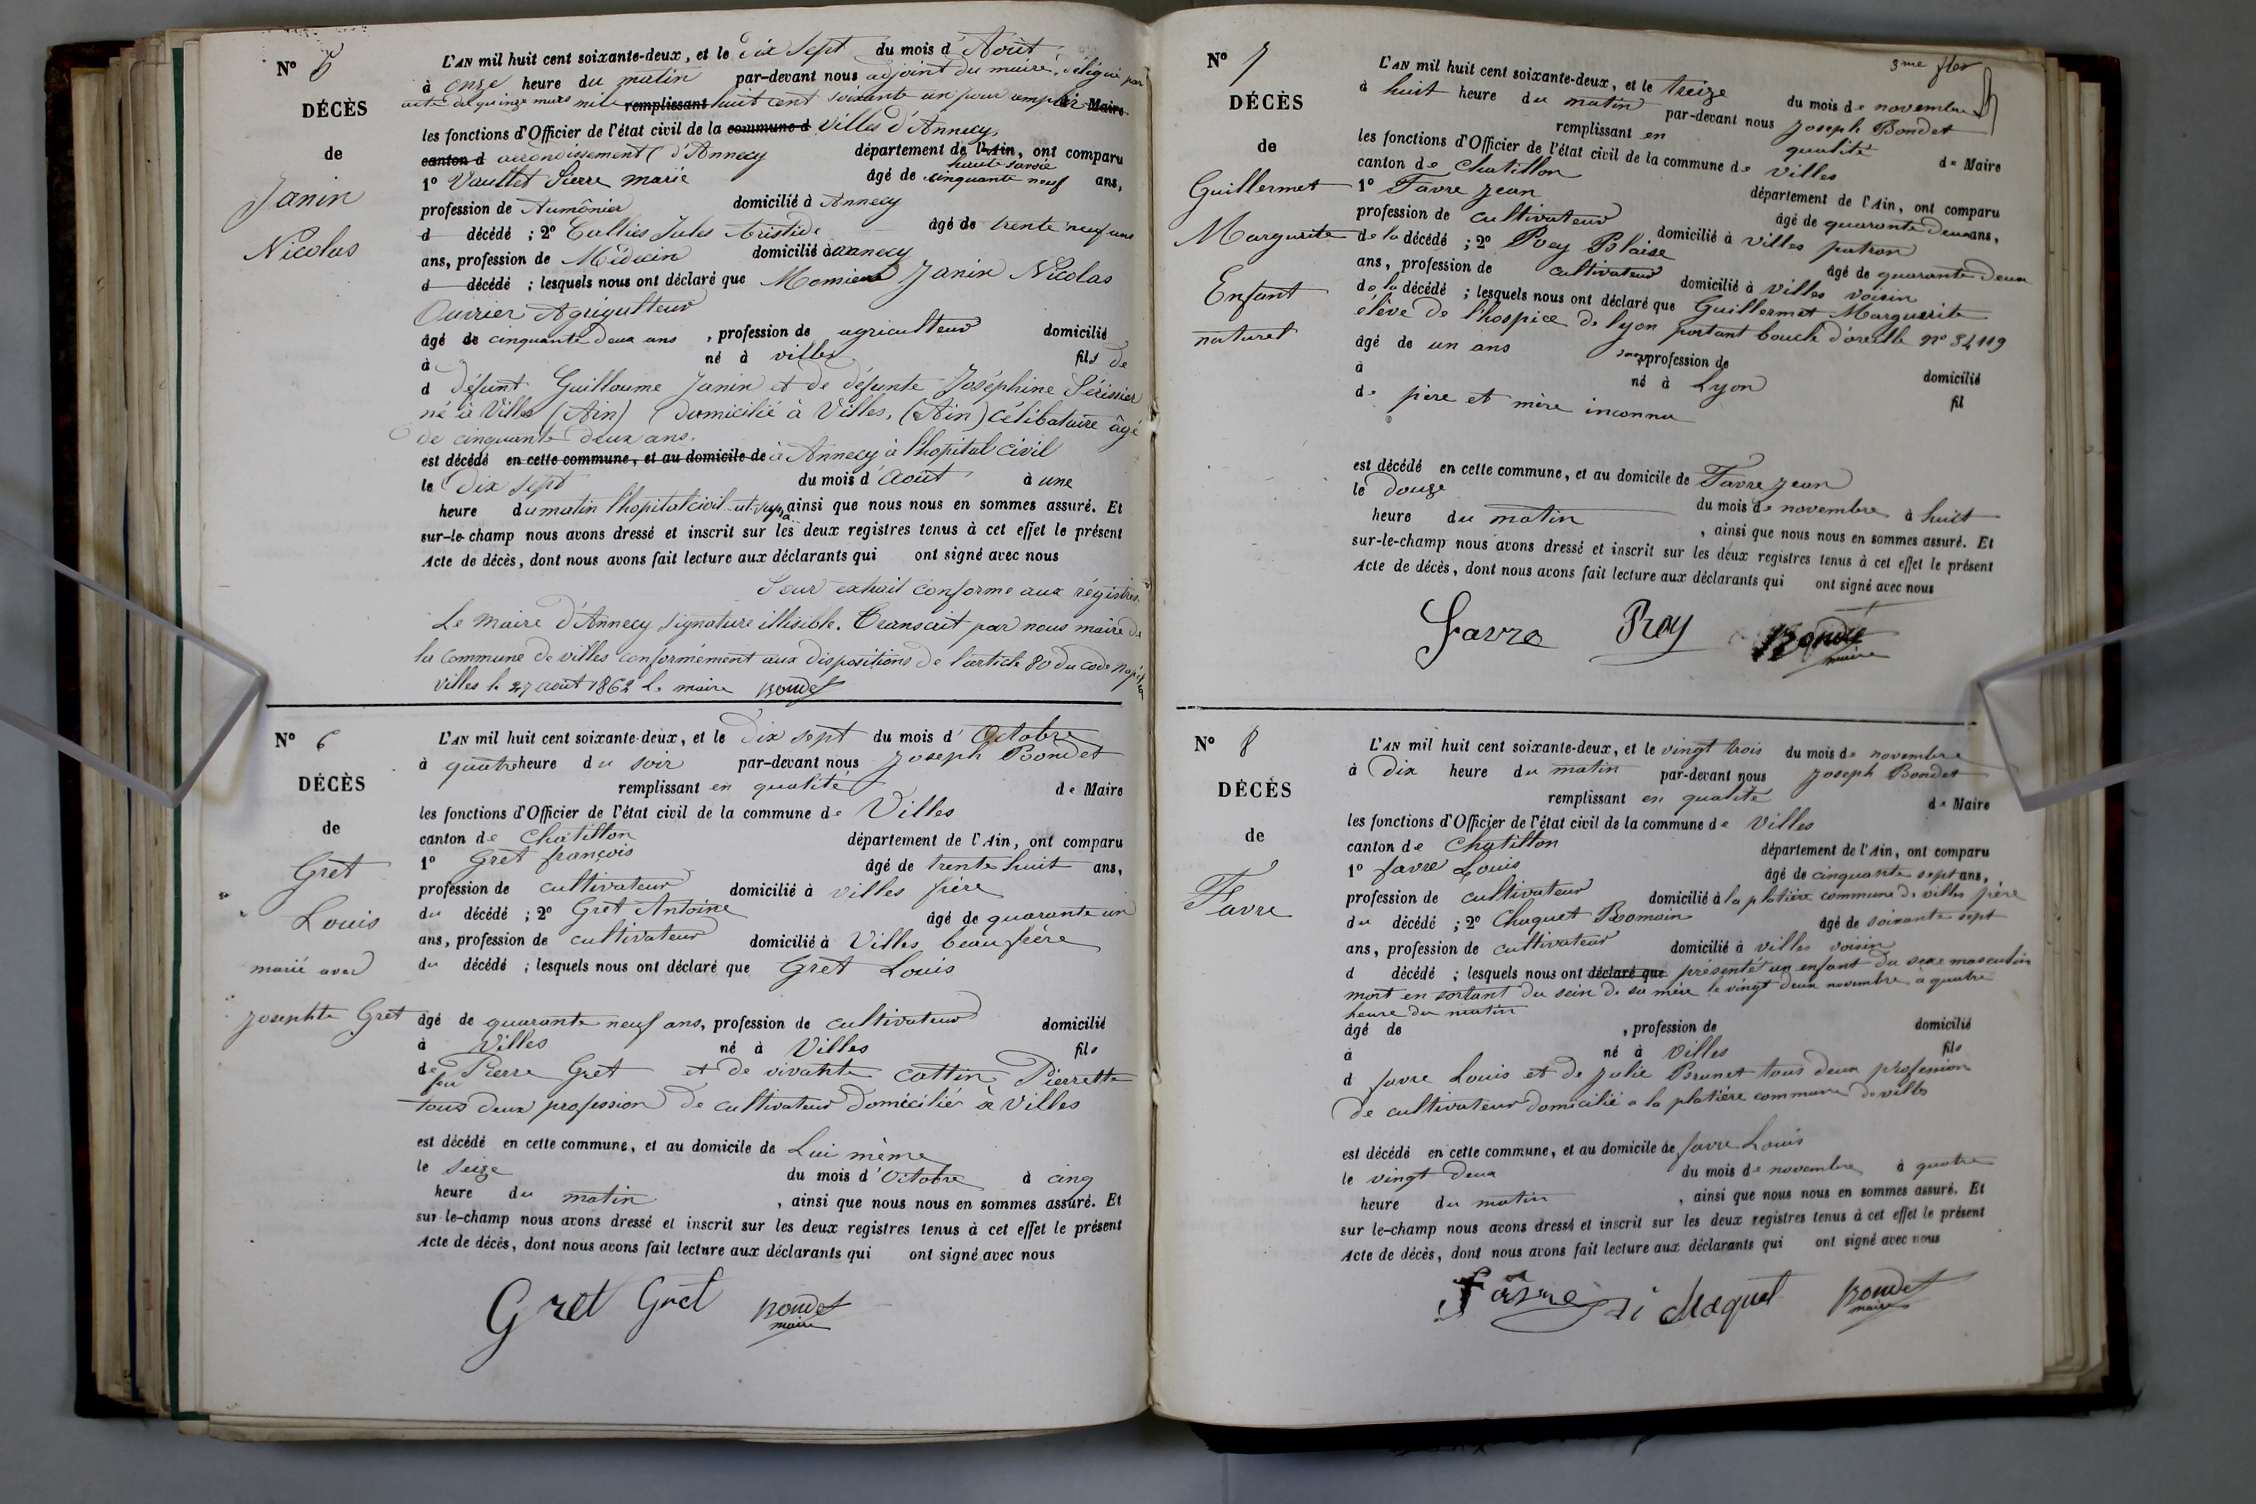 N° 5
DÉCÈS
de
Janin
Nicolas
L'AN mil huit cent soixante-deux, et le dix sept du mois d'Août
à onze heure du matin par-devant nous adjoint du maire, délégué par
acte du quinze mars mil remplissant huit cent soixante un pour remplir de Maire
les fonctions d'Officier de l'état civil de la commune d Villes d'Annecy
canton d arrondissement d'Annecy département de l'Ain, ont comparu
haute savoie
1° Vaullet Pierre marie âgé de cinquante neuf ans,
profession de Aumônier domicilié à Annecy
d décédé ; 2° Callies Jules Aristide âgé de trente neuf ans
ans, profession de Médecin domicilié à annecy
d décédé ; lesquels nous ont déclaré que Janin Nicolas
Ouvrier Agriculteur
âgé de cinquante deux ans , profession de agriculteur domicilié
à né à villes fils de
d défunt Guillaume Janin et de défunte Joséphine Périssier
né à Villes (Ain) domicilié à Villes, (Ain) célibataire âgé
de cinquante deux ans.
est décédé en cette commune, et au domicile de à Annecy à l'hopital civil
le Dix sept du mois d'août à une
heure du matin l'hopital civil ut supra ainsi que nous nous en sommes assuré. Et
sur-le-champ nous avons dressé et inscrit sur les deux registres tenus à cet effet le présent
Acte de décès, dont nous avons fait lecture aux déclarants qui ont signé avec nous
Pour extrait conforme aux régistres
Le maire d'Annecy signature illisible. Transcrit par nous maire de
la commune de villes conformément aux dispositions de l'article 80 du code
villes le 27 août 1862 le maire Bondet
N° 6
DÉCÈS
de
Gret
Louis
marié avec
Josephte Gret
L'AN mil huit cent soixante-deux, et le Dix sept du mois d'Octobre
à quatre heure du soir par-devant nous Joseph Bondet
remplissant en qualité de Maire
les fonctions d'Officier de l'état civil de la commune de Villes
canton de Chatillon département de l'Ain, ont comparu
1° Gret françois âgé de trente huit ans,
profession de cultivateur domicilié à villes frère
du décédé ; 2° Gret Antoine âgé de quarante un
ans, profession de cultivateur domicilié à Villes beau frère
du décédé ; lesquels nous ont déclaré que Gret Louis
âgé de quarante neuf ans, profession de cultivateur domicilié
à Villes né à Villes fils
de feu Pierre Gret et de vivante Cottin Pierrette
tous deux profession de cultivateur domicilié à Villes
est décédé en cette commune, et au domicile de Lui même
le seize du mois d'Octobre à cinq
heure du matin , ainsi que nous nous en sommes assuré. Et
sur-le-champ nous avons dressé et inscrit sur les deux registres tenus à cet effet le présent
Acte de décès, dont nous avons fait lecture aux déclarants qui ont signé avec nous
Gret Gret Bondet
maire
3me
N° 7
DÉCÈS
de
Guillermet
Marguerite
Enfant
naturel
L'AN mil huit cent soixante-deux, et le treize du mois de novembre
à huit heure du matin par-devant nous Joseph Bondet
remplissant en qualité de Maire
les fonctions d'Officier de l'état civil de la commune de villes
canton de Chatillon département de l'Ain, ont comparu
1° Favre Jean âgé de quarante deux ans,
profession de cultivateur domicilié à villes patron
de la décédé ; 2° Poey Blaise âgé de quarante deux
ans, profession de cultivateur domicilié à villes voisin
de la décédé ; lesquels nous ont déclaré que Guillermet Marguerite
élève de l'hospice de lyon portant boucle d'oreille n° 34119
âgé de un ans sans profession de domicilié
à né à Lyon fil
de père et mère inconnu
est décédé en cette commune, et au domicile de Favre Jean
le douze du mois de novembre à huit
heure du matin , ainsi que nous nous en sommes assuré. Et
sur-le-champ nous avons dressé et inscrit sur les deux registres tenus à cet effet le présent
Acte de décès, dont nous avons fait lecture aux déclarants qui ont signé avec nous
Favre Bondet
maire
N° 8
DÉCÈS
de
Favre
L'AN mil huit cent soixante-deux, et le vingt trois du mois de novembre
à Dix heure du matin par-devant nous Joseph Bondet
remplissant en qualité de Maire
les fonctions d'Officier de l'état civil de la commune de Villes
canton de Chatillon département de l'Ain, ont comparu
1° favre Louis âgé de cinquante sept ans,
profession de cultivateur domicilié à la platière commune de villes père
du décédé ; 2° Chaquet Romain âgé de soixante sept
ans, profession de cultivateur domicilié à villes voisin
d décédé ; lesquels nous ont déclaré que présenté un enfant du sexe masculin
mort en sortant du sein de sa mère le vingt deux novembre à quatre
heure du matin
âgé de , profession de domicilié
à né à Villes fils
d favre Louis et de Julie Brunet tous deux profession
De cultivateur domicilié a la platière commune de villes
est décédé en cette commune, et au domicile de favre Louis
le vingt deux du mois de novembre à quatre
heure du matin , ainsi que nous nous en sommes assuré. Et
sur le-champ nous avons dressé et inscrit sur les deux registres tenus à cet effet le présent
Acte de décès, dont nous avons fait lecture aux déclarants qui ont signé avec nous
favre Bondet
maire